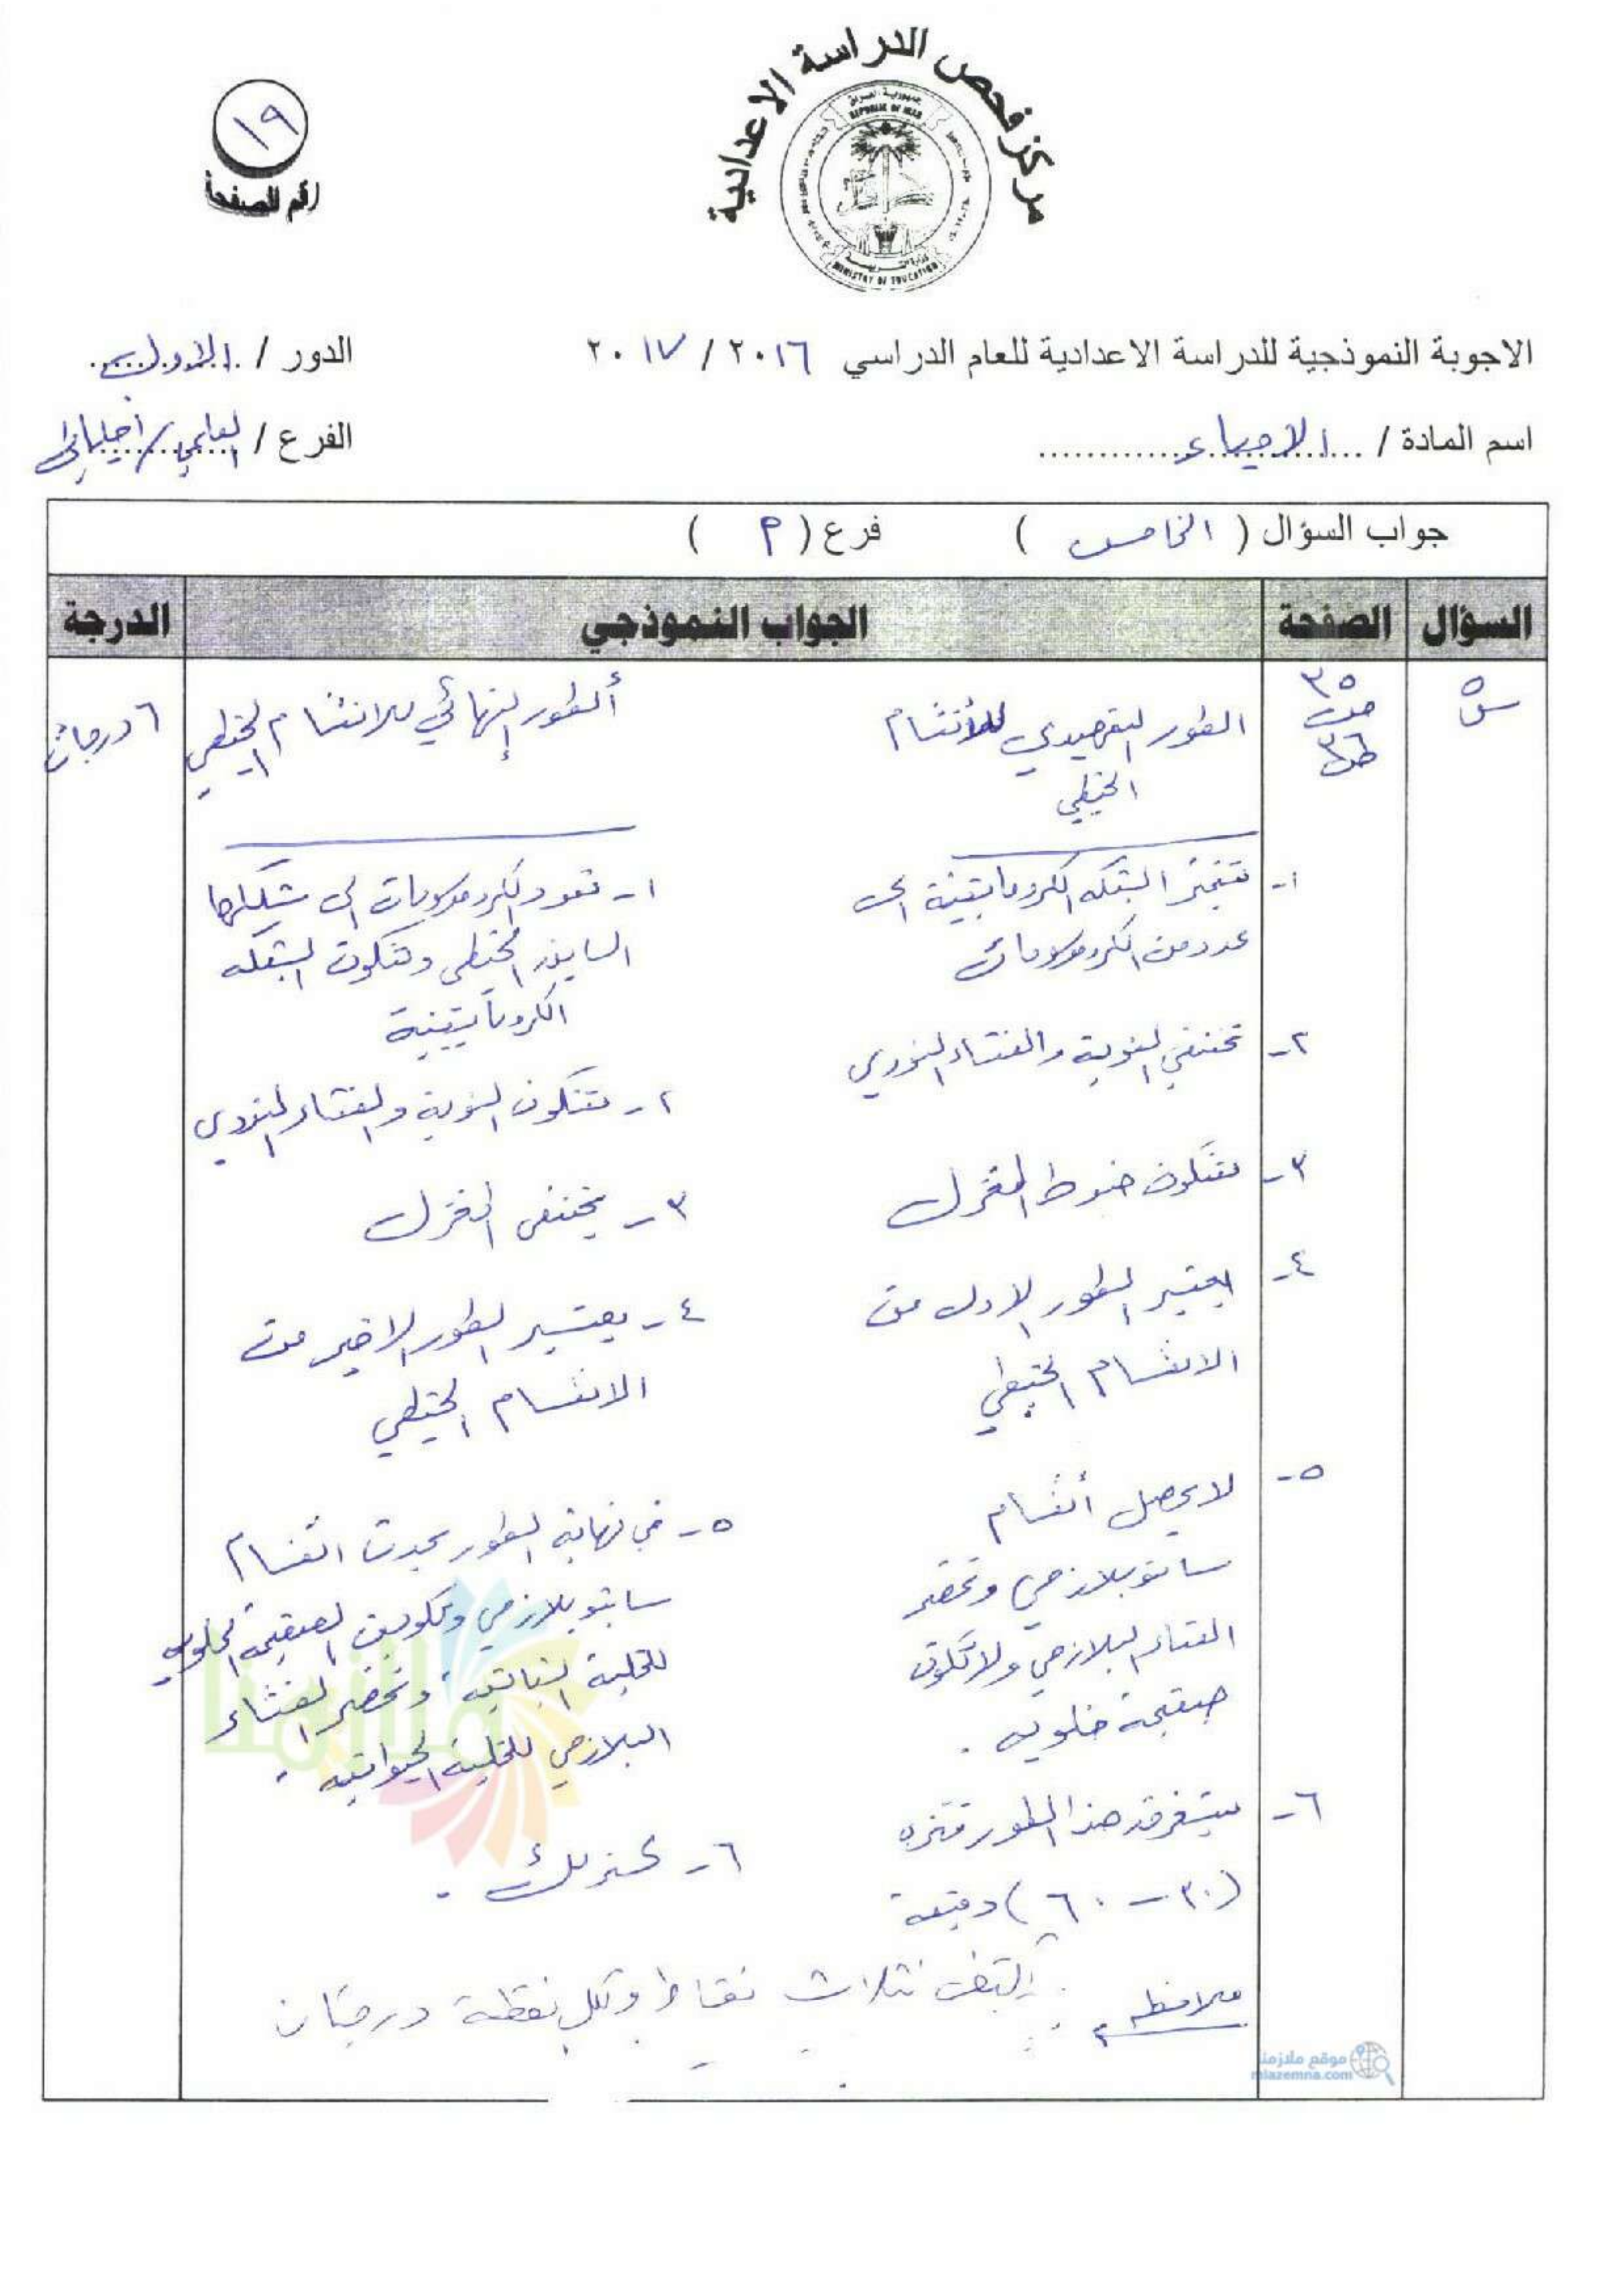 مركز فحص الدراسة الاعدادية
REPUBLIC OF IRAQ
MINISTRY OF EDUCATION
١٩
رقم الصفحة
الاجوبة النموذجية للدراسة الاعدادية للعام الدراسي ٢٠١٦ / ٢٠١٧
الدور / الاول
اسم المادة / الاحياء
الفرع / العلمي / احيائي
جواب السؤال ( الخامس ) فرع ( م )
السؤال الصفحة الجواب النموذجي الدرجة
س٥
٣٥
ص
ص٣٦
٦ درجات
الطور التمهيدي للأنقسام
الخيطي
ألطور النهائي للانقسام الخيطي
١- تتميز الشبكه الكروماتينية الى
عدد من الكروموسومات
١- تعود الكروموسومات الى شكلها
السابق الخيطي وتتكون الشبكه
الكروماتينية
٢- تختفي النوية والغشاء النووي
٢- تتكون النوية والغشاء النووي
٣- تتكون خيوط المغزل
٣- يختفي المغزل
٤- يعتبر الطور الاول من
الانقسام الخيطي
٤- يعتبر الطور الاخير من
الانقسام الخيطي
٥- لا يحصل أنقسام
سايتوبلازمي وتخصر
الغشاء البلازمي ولا تتكون
صفيحة خلويه .
٥- في نهاية الطور يحدث انقسام
سايتوبلازمي وتكوين الصفيحة الخلويه
للخلية النباتيه وتخصر الغشاء
البلازمي للخلية الحيوانيه .
٦- يستغرق هذا الطور فتره
(٣٠ - ٦٠) دقيقة
٦- كذلك .
ملاحظه : يكتفى بثلاث نقاط ولكل نقطة درجتان
ملازمنا
موقع ملازمنا
mlazemna.com